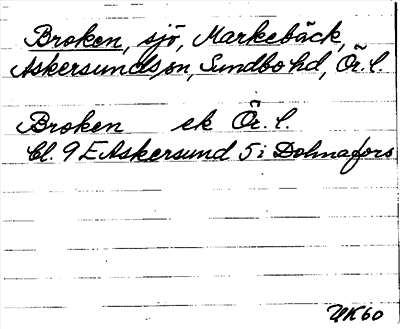 Broken, sjö, Markebäck,
Askersunds sn, Sundbo hd, Ör. l.
Broken ek Ör. l.
Bl. 9 E Askersund 5 i Dohnafors
UK60